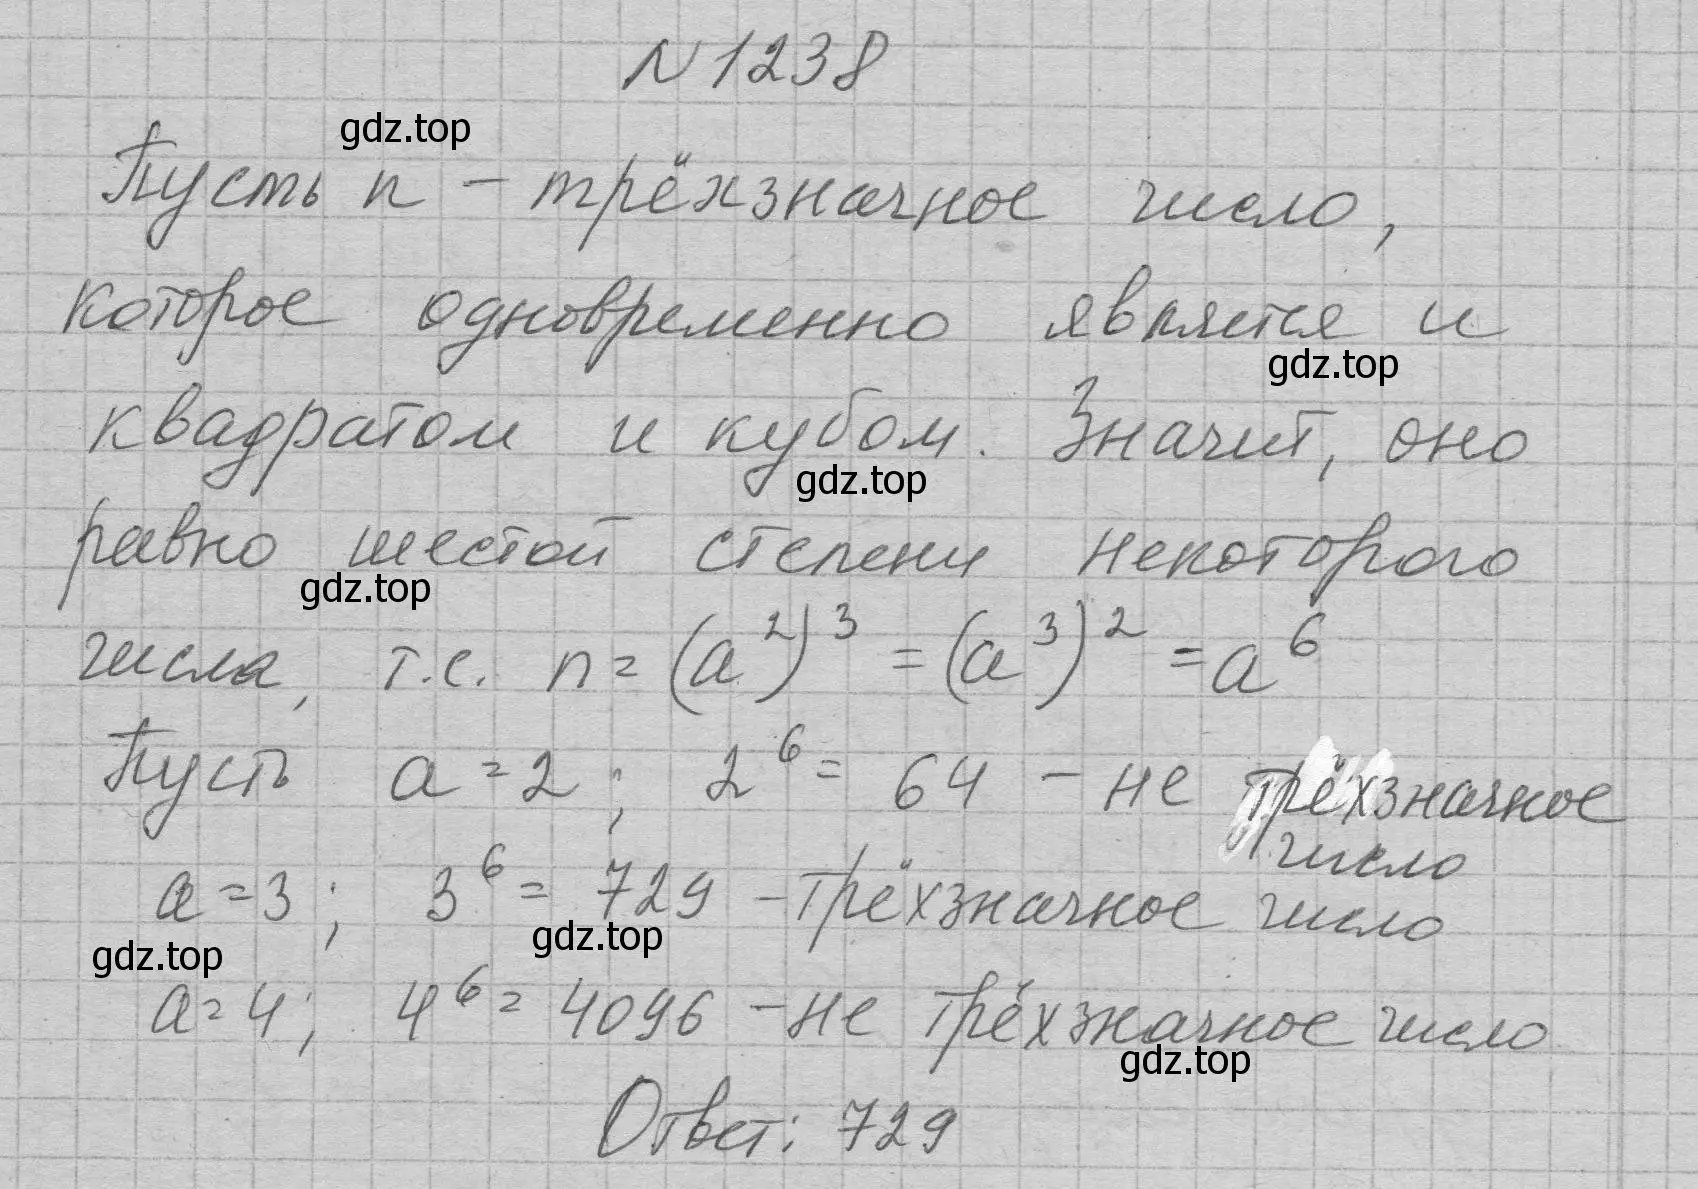 № 1238
gdz.top
Пусть n – трёхзначное число,
которое одновременно является и
gdz.top
квадратом и кубом. Значит, оно
gdz.top
равно шестой степени некоторого
gdz.top
числа, т.е. n = (a²)³ = (a³)² = a⁶
Пусть a = 2; 2⁶ = 64 – не трёхзначное
число
a = 3; 3⁶ = 729 – трёхзначное число
gdz.top gdz.top
a = 4; 4⁶ = 4096 – не трёхзначное число
gdz.top
Ответ: 729